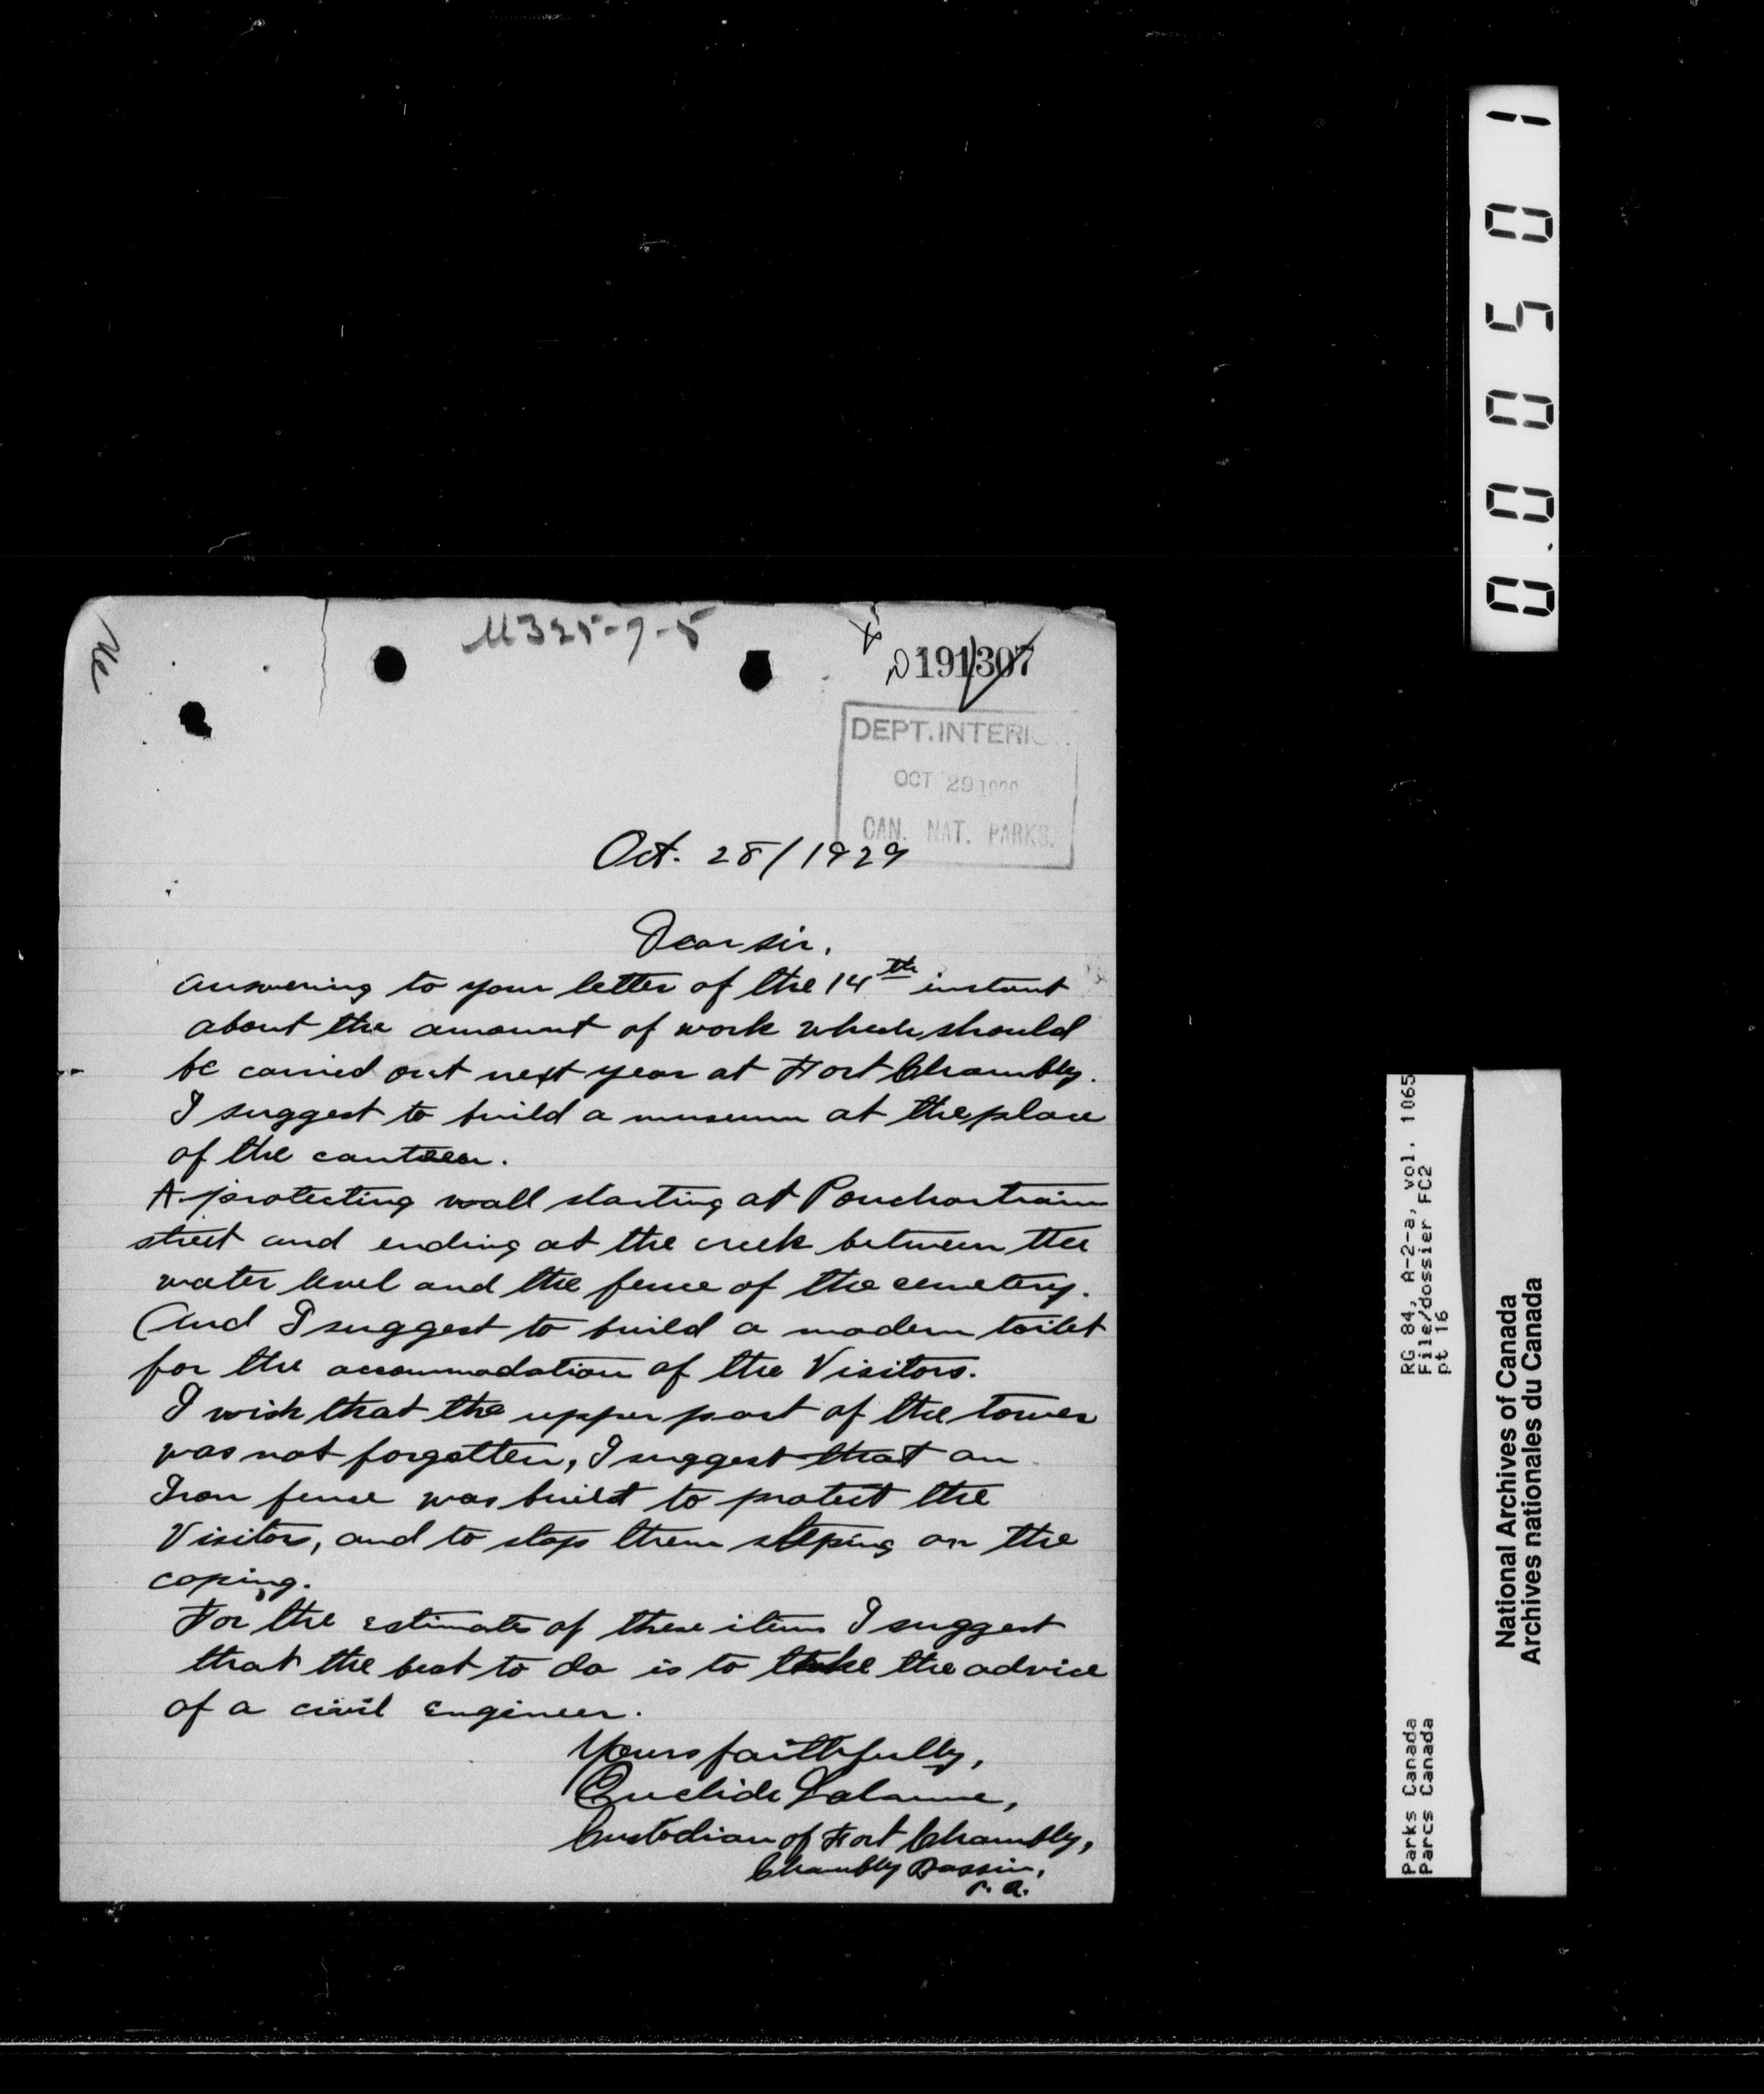 0.00501
M325-7-5
191307
DEPT. INTERI
OCT 29
CAN. NAT. PARKS.
Oct. 28/1929
Dear sir,
answering to your letter of the 14th instant
about the amount of work which should
be carried out next year at Fort Chambly.
I suggest to build a museum at the place
of the canteen.
A protecting wall starting at Ponchartrain
street and ending at the creek between the
water level and the fence of the cemetery.
And I suggest to build a modern toilet
for the accommodation of the Visitors.
I wish that the upper part of the tower
was not forgotten, I suggest that an
Iron fence was build to protect the
Visitors, and to stop them steping on the
coping.
For the estimate of these items I suggest
that the best to do is to take the advice
of a civil Engineer.
Yours faithfully,
Euclide Lalanne,
Custodian of Fort Chambly,
Chambly Bassin,
P. Q.
RG 84, A-2-a, vol. 1065
File/dossier FC2
pt 16
Parks Canada
Parcs Canada
National Archives of Canada
Archives nationales du Canada